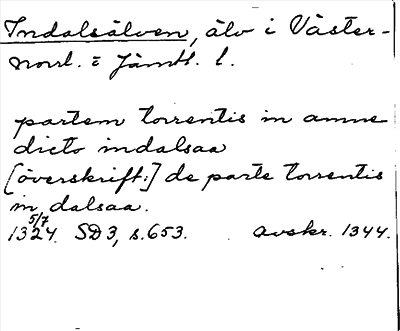 Indalsälven, älv i Väster-
norrl. o Jämtl. l.
partem torrentis in amne
dicto indalsaa
[överskrift:] de parte torrentis
in dalsaa.
5/7
1324. SD 3, s. 653. avskr. 1344.